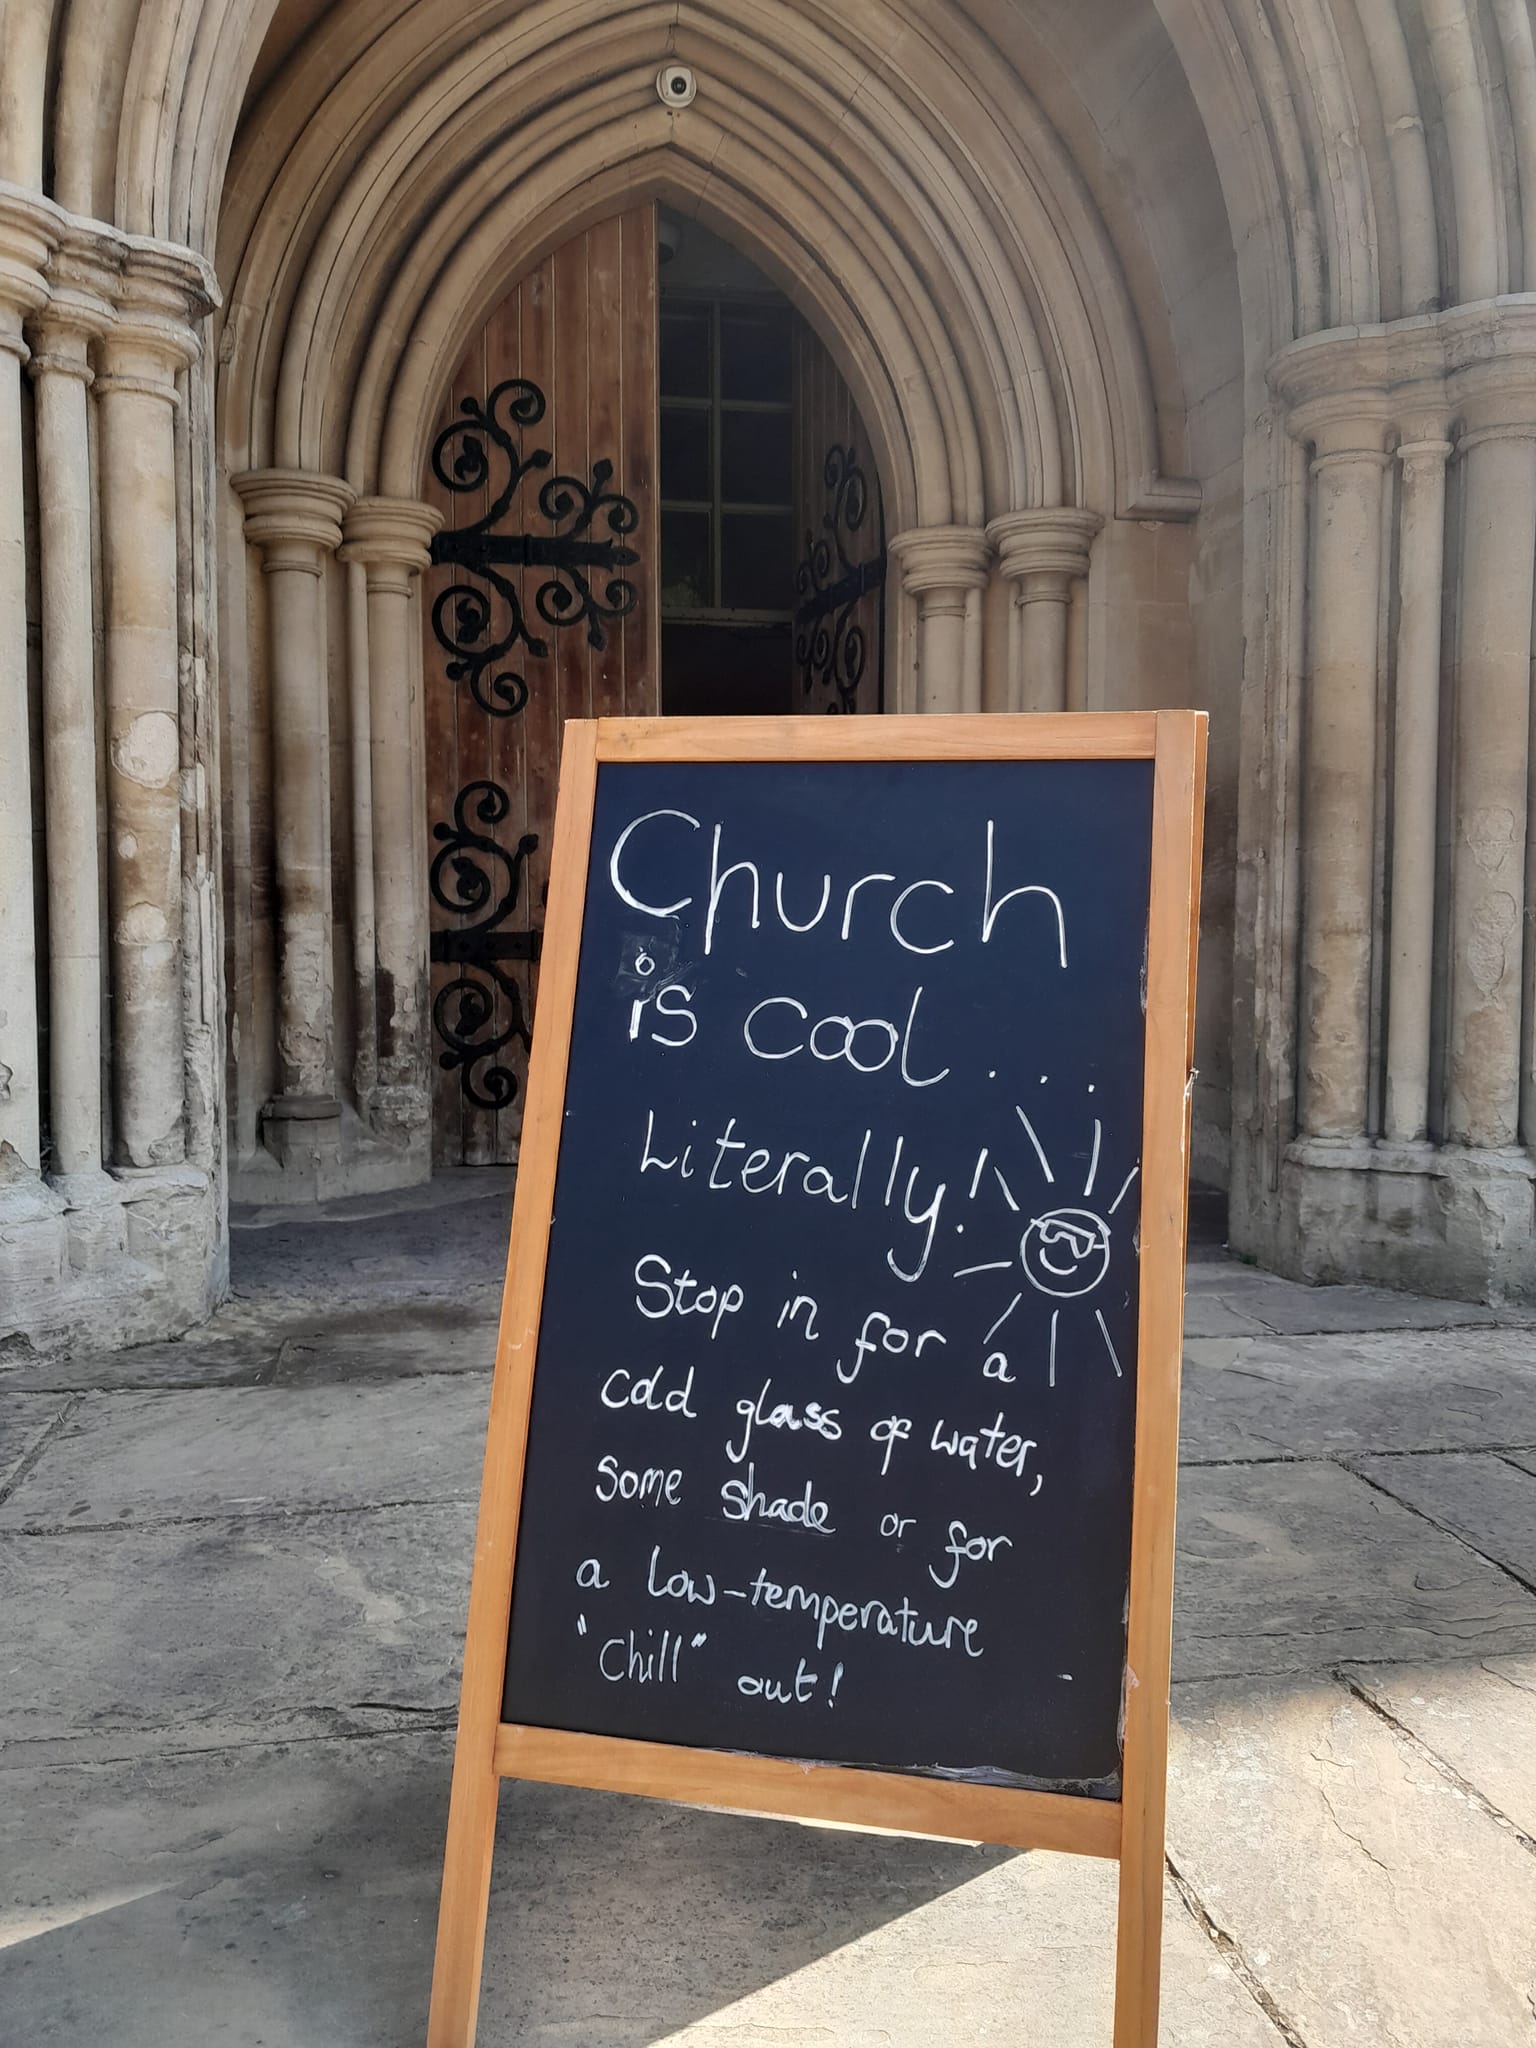 Church
is cool...
Literally!
Stop in for a
cold glass of water,
some shade or for
a low-temperature
"Chill" out!